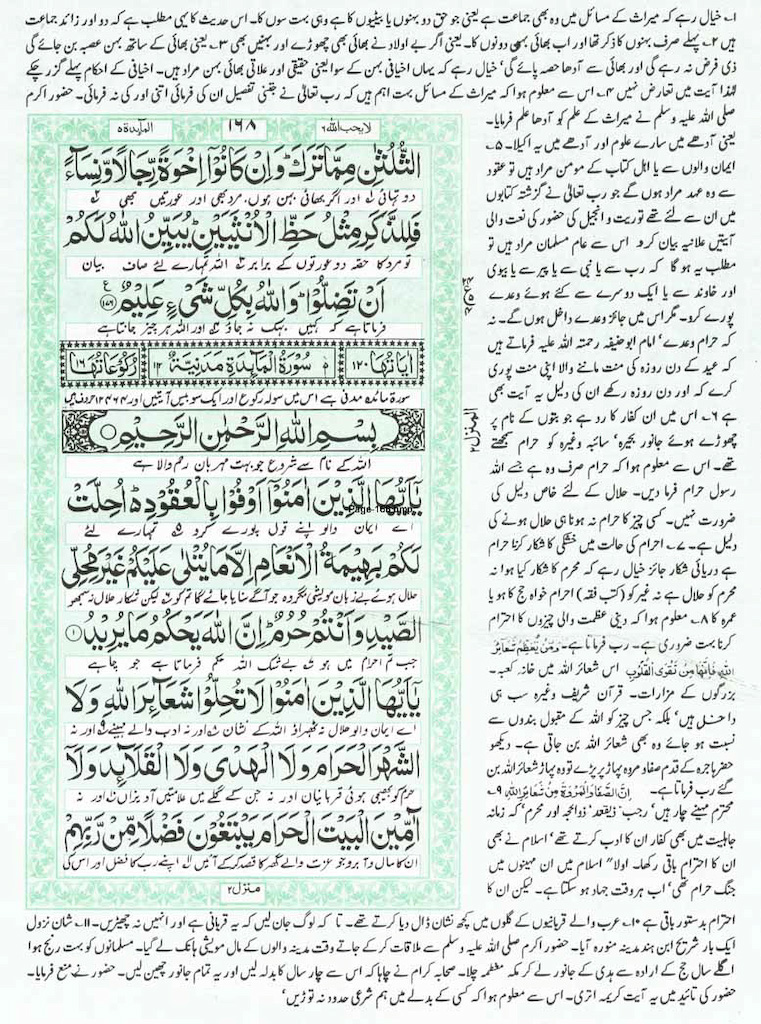 ۱؎ خیال رہے کہ میراث کے مسائل میں دو بھی جماعت ہے یعنی جو حق دو بہنوں یا بیٹیوں کا ہے وہی بہت سوں کا۔ اس حدیث کا یہی مطلب ہے کہ دو اور زائد جماعت
ہیں ۲؎ پہلے صرف بہنوں کا ذکر تھا اور اب بھائی بہن دونوں کا۔ یعنی اگر بے اولاد نے بھائی بھی چھوڑے اور بہنیں بھی ۳؎ یعنی بھائی کے ساتھ بہن عصبہ بن جائے گی
ذی فرض نہ رہے گی اور بھائی سے آدھا حصہ پائے گی' خیال رہے کہ یہاں اخیافی بہن کے سوا یعنی حقیقی اور علاتی بھائی بہن مراد ہیں۔ اخیافی کے احکام پہلے گزر چکے
لہٰذا آیت میں تعارض نہیں ۴؎ اس سے معلوم ہوا کہ میراث کے مسائل بہت اہم ہیں کہ رب تعالیٰ نے جتنی تفصیل ان کی فرمائی اتنی اور کی نہ فرمائی۔ حضور اکرم
صلی اللہ علیہ وسلم نے میراث کے علم کو آدھا علم فرمایا۔
یعنی آدھے میں سارے علوم اور آدھے میں یہ اکیلا۔ ۵؎
ایمان والوں سے یا اہل کتاب کے مومن مراد ہیں تو عقود
سے وہ عہد مراد ہوں گے جو رب تعالیٰ نے گزشتہ کتابوں
میں ان سے لئے تھے توریت و انجیل کی حضور کی نعت والی
آیتیں علانیہ بیان کرو۔ اس سے عام مسلمان مراد ہیں تو
مطلب یہ ہو گا کہ رب سے یا نبی سے یا پیر سے یا بیوی
اور خاوند سے یا ایک دوسرے سے کئے ہوئے وعدے
پورے کرو۔ مگر اس میں جائز وعدے داخل ہوں گے۔ نہ
کہ حرام وعدے' امام ابو حنیفہ رحمتہ اللہ علیہ فرماتے ہیں
کہ عید کے دن روزہ کی منت ماننے والا اپنی منت پوری
کرے گا اور دن روزہ رکھے ان کی دلیل یہ آیت بھی
ہے ۶؎ اس میں ان کفار کا رد ہے جو بتوں کے نام پر
چھوڑے ہوئے جانور بحیرہ' سائبہ وغیرہ کو حرام سمجھتے
تھے۔ اس سے معلوم ہوا کہ حرام صرف وہ ہے جسے اللہ
رسول حرام فرما دیں۔ حلال کے لئے خاص دلیل کی
ضرورت نہیں۔ کسی چیز کا حرام نہ ہونا ہی حلال ہونے کی
دلیل ہے۔ ۷؎ احرام کی حالت میں خشکی کا شکار کرنا حرام
ہے دریائی شکار جائز خیال رہے کہ محرم کا شکار کیا ہوا نہ
محرم کو حلال ہے نہ غیر کو (کتب فقہ) احرام خواہ حج کا ہو یا
عمرہ کا ۸؎ معلوم ہوا کہ دینی عظمت والی چیزوں کا احترام
کرنا بہت ضروری ہے۔ رب فرماتا ہے۔ وَمَنْ يُعَظِّمْ شَعَائِرَ
اللّٰهِ فَاِنَّهَا مِنْ تَقْوَى الْقُلُوْبِ اس شعائر اللہ میں خانہ کعبہ۔
بزرگوں کے مزارات۔ قرآن شریف وغیرہ سب ہی
داخل ہیں' بلکہ جس چیز کو اللہ کے مقبول بندوں سے
نسبت ہو جائے وہ بھی شعائر اللہ بن جاتی ہے۔ دیکھو
حضرت ہاجرہ کے قدم صفا و مروہ پہاڑ پر پڑے تو وہ پہاڑ شعائر اللہ بن
گئے رب فرماتا ہے۔ اِنَّ الصَّفَا وَالْمَرْوَةَ مِنْ شَعَائِرِ اللّٰهِ ۹؎
محترم مہینے چار ہیں' رجب' ذیقعد' ذوالحجہ اور محرم' کہ زمانہ
جاہلیت میں بھی کفار ان کا ادب کرتے تھے' اسلام نے بھی
ان کا احترام باقی رکھا۔ اولاً اسلام میں ان مہینوں میں
جنگ حرام تھی' اب ہر وقت جہاد ہو سکتا ہے۔ لیکن ان کا
المآئدۃ ۵
۱۶۸
لا یحب اللہ ۶
الثُّلُثٰنِ مِمَّا تَرَكَ ؕ وَاِنْ كَانُوْۤا اِخْوَةً رِّجَالًا وَّنِسَآءً
دو تہائی اور اگر بھائی بہن ہوں، مرد بھی اور عورتیں بھی
فَلِلذَّكَرِ مِثْلُ حَظِّ الْاُنْثَيَيْنِ ؕ يُبَيِّنُ اللّٰهُ لَكُمْ
تو مرد کا حصہ دو عورتوں کے برابر اللہ تمہارے لئے صاف بیان
اَنْ تَضِلُّوْا ؕ وَاللّٰهُ بِكُلِّ شَيْءٍ عَلِيْمٌ ۝۱۷۶
فرماتا ہے کہ کہیں بہک نہ جاؤ اور اللہ ہر چیز جانتا ہے
اٰيَاتُهَا ۱۲۰ ۵ سُوْرَةُ الْمَآئِدَةِ مَدَنِيَّةٌ ۱۱۲ رُكُوْعَاتُهَا ۱۶
سورۃ مائدہ مدنی ہے اس میں سولہ رکوع اور ایک سو بیس آیتیں اور ۱۲۴۶۴ حروف ہیں
بِسْمِ اللّٰهِ الرَّحْمٰنِ الرَّحِيْمِ
اللہ کے نام سے شروع جو بہت مہربان رحم والا ہے
يٰۤاَيُّهَا الَّذِيْنَ اٰمَنُوْۤا اَوْفُوْا بِالْعُقُوْدِ ؕ اُحِلَّتْ
Page-168.bmp
اے ایمان والو اپنے قول پورے کرو تمہارے لئے
لَكُمْ بَهِيْمَةُ الْاَنْعَامِ اِلَّا مَا يُتْلٰى عَلَيْكُمْ غَيْرَ مُحِلِّي
حلال ہوئے بے زبان مویشی مگر وہ جو آگے سنایا جائے گا تم کو لیکن شکار حلال نہ سمجھو
الصَّيْدِ وَاَنْتُمْ حُرُمٌ ؕ اِنَّ اللّٰهَ يَحْكُمُ مَا يُرِيْدُ ۝۱
جب تم احرام میں ہو بے شک اللہ حکم فرماتا ہے جو چاہے
يٰۤاَيُّهَا الَّذِيْنَ اٰمَنُوْا لَا تُحِلُّوْا شَعَآئِرَ اللّٰهِ وَلَا
اے ایمان والو حلال نہ ٹھہرا لو اللہ کے نشان اور نہ ادب والے مہینے اور نہ
الشَّهْرَ الْحَرَامَ وَلَا الْهَدْيَ وَلَا الْقَلَآئِدَ وَلَاۤ
حرم کو بھیجی ہوئی قربانیاں اور نہ جن کے گلے میں علامتیں آویزاں اور نہ
آٰمِّيْنَ الْبَيْتَ الْحَرَامَ يَبْتَغُوْنَ فَضْلًا مِّنْ رَّبِّهِمْ
ان کا مال و آبرو جو عزت والے گھر کا قصد کر کے آئیں اپنے رب کا فضل اور اس کی
منزل ۲
المنزل ۲
احترام بدستور باقی ہے ۱۰؎ عرب والے قربانیوں کے گلوں میں کچھ نشان ڈال دیا کرتے تھے۔ تا کہ لوگ جان لیں کہ یہ قربانی ہے اور انہیں نہ چھیڑیں۔ ۱۱؎ شان نزول
ایک بار شریح ابن ہند مدینہ منورہ آیا۔ حضور اکرم صلی اللہ علیہ وسلم سے ملاقات کر کے جاتے وقت مدینہ والوں کے مال مویشی ہانک لے گیا۔ مسلمانوں کو بہت رنج ہوا
اگلے سال حج کے ارادہ سے ہدی کے جانور لے کر مکہ معظمہ چلا۔ صحابہ کرام نے چاہا کہ اس سے چار سال کا بدلہ لیں اور یہ تمام جانور چھین لیں۔ حضور نے منع فرمایا۔
حضور کی تائید میں یہ آیت کریمہ اتری۔ اس سے معلوم ہوا کہ کسی کے بدلے میں ہم شرعی حدود نہ توڑیں'